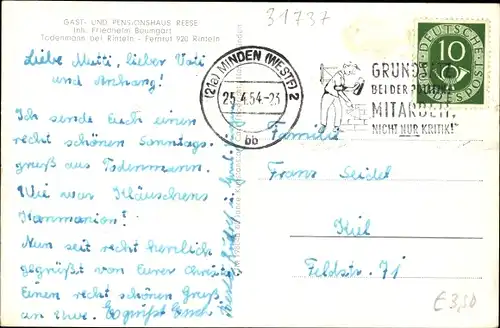 GAST- UND PENSIONSHAUS REESE
Inh. Friedhelm Baumgart
Todenmann bei Rinteln - Fernruf 920 Rinteln
31737
Liebe Mutti, lieber Vati
und Anhang!
Ich sende Euch einen
recht schönen Sonntags-
gruß aus Todenmann.
Wie war Kläuschens
Kommunion?
Nun seit recht herzlich
gegrüßt von Eurer Christa
Einen recht schönen Gruß
an Uwe. Es grüßt Euch
(21a) MINDEN (WESTF) 2
25.4.54.-23
bb
GRUNDSATZ
BEI DER POLITIK:
MITARBEIT,
NICHT NUR KRITIK!"
DEUTSCHE
10
BUNDESPOST
Familie
Franz Seidel
Kiel
Feldstr. 71
€ 3,50